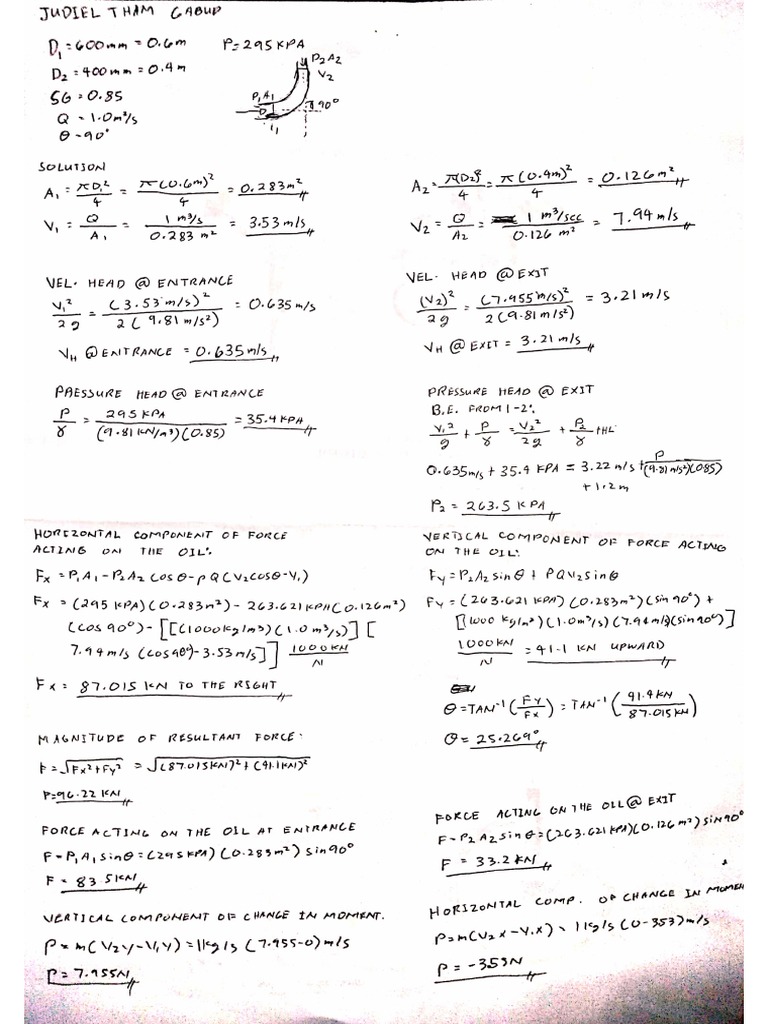 JUDIEL THAM GABUD
D₁ = 600mm = 0.6m
P = 295 KPA
D₂ = 400mm = 0.4m
SG = 0.85
Q = 1.0m³/s
θ = 90°
P₂A₂
V₂
P₁A₁
90°
SOLUTION
A₁ = πD₁²/4 = π(0.6m)²/4 = 0.283m²
V₁ = Q/A₁ = 1 m³/s / 0.283 m² = 3.53 m/s
A₂ = π(D₂)²/4 = π(0.4m)²/4 = 0.126m²
V₂ = Q/A₂ = 1 m³/sec / 0.126 m² = 7.94 m/s
VEL. HEAD @ ENTRANCE
V₁²/2g = (3.53 m/s)²/2(9.81 m/s²) = 0.635 m/s
V_H @ ENTRANCE = 0.635 m/s
VEL. HEAD @ EXIT
(V₂)²/2g = (7.955 m/s)²/2(9.81 m/s²) = 3.21 m/s
V_H @ EXIT = 3.21 m/s
PRESSURE HEAD @ ENTRANCE
P/γ = 295 KPA/(9.81 KN/m³)(0.85) = 35.4 KPA
PRESSURE HEAD @ EXIT
B.E. FROM 1-2:
V₁²/g + P/γ = V₂²/2g + P₂/γ + HL
0.635 m/s + 35.4 KPA = 3.22 m/s + P/(9.81 m/s²)(085)
+ 1.2 m
P₂ = 263.5 KPA
HORIZONTAL COMPONENT OF FORCE
ACTING ON THE OIL:
Fx = P₁A₁ - P₂A₂ COSθ - ρQ(V₂COSθ - V₁)
Fx = (295 KPA)(0.283m²) - 263.621 KPA(0.126m²)
(COS 90°) - [[(1000 kg/m³)(1.0 m³/s)] [
7.94 m/s (COS 90° - 3.53 m/s]] 1000KN/N
Fx = 87.015 KN TO THE RIGHT
VERTICAL COMPONENT OF FORCE ACTING
ON THE OIL:
Fy = P₂A₂ sinθ + PQV₂ sinθ
Fy = (263.621 KPA)(0.283m²)(sin 90°) +
[[1000 kg/m²)(1.0m³/s)(7.94 m/s)(sin90°)]
1000 KN/N = 41.1 KN UPWARD
θ = TAN⁻¹(Fy/Fx) = TAN⁻¹(41.4 KN/87.015 KN)
θ = 25.269°
MAGNITUDE OF RESULTANT FORCE:
F = √Fx² + Fy² = √(87.015KN)² + (41.1KN)²
F = 96.22 KN
FORCE ACTING ON THE OIL AT ENTRANCE
F = P₁A₁ sinθ = (295 KPA)(0.283m²) sin90°
F = 83.5 KN
FORCE ACTING ON THE OIL @ EXIT
F = P₂A₂ sinθ = (263.621 KPA)(0.126 m²) sin90°
F = 33.2 KN
VERTICAL COMPONENT OF CHANGE IN MOMENT.
P = m(V₂y - V₁y) = 1kg/s (7.955-0) m/s
P = 7.955N
HORIZONTAL COMP. OF CHANGE IN MOMEN
P = m(V₂x - V₁x) = 1 kg/s (0-353) m/s
P = -353N